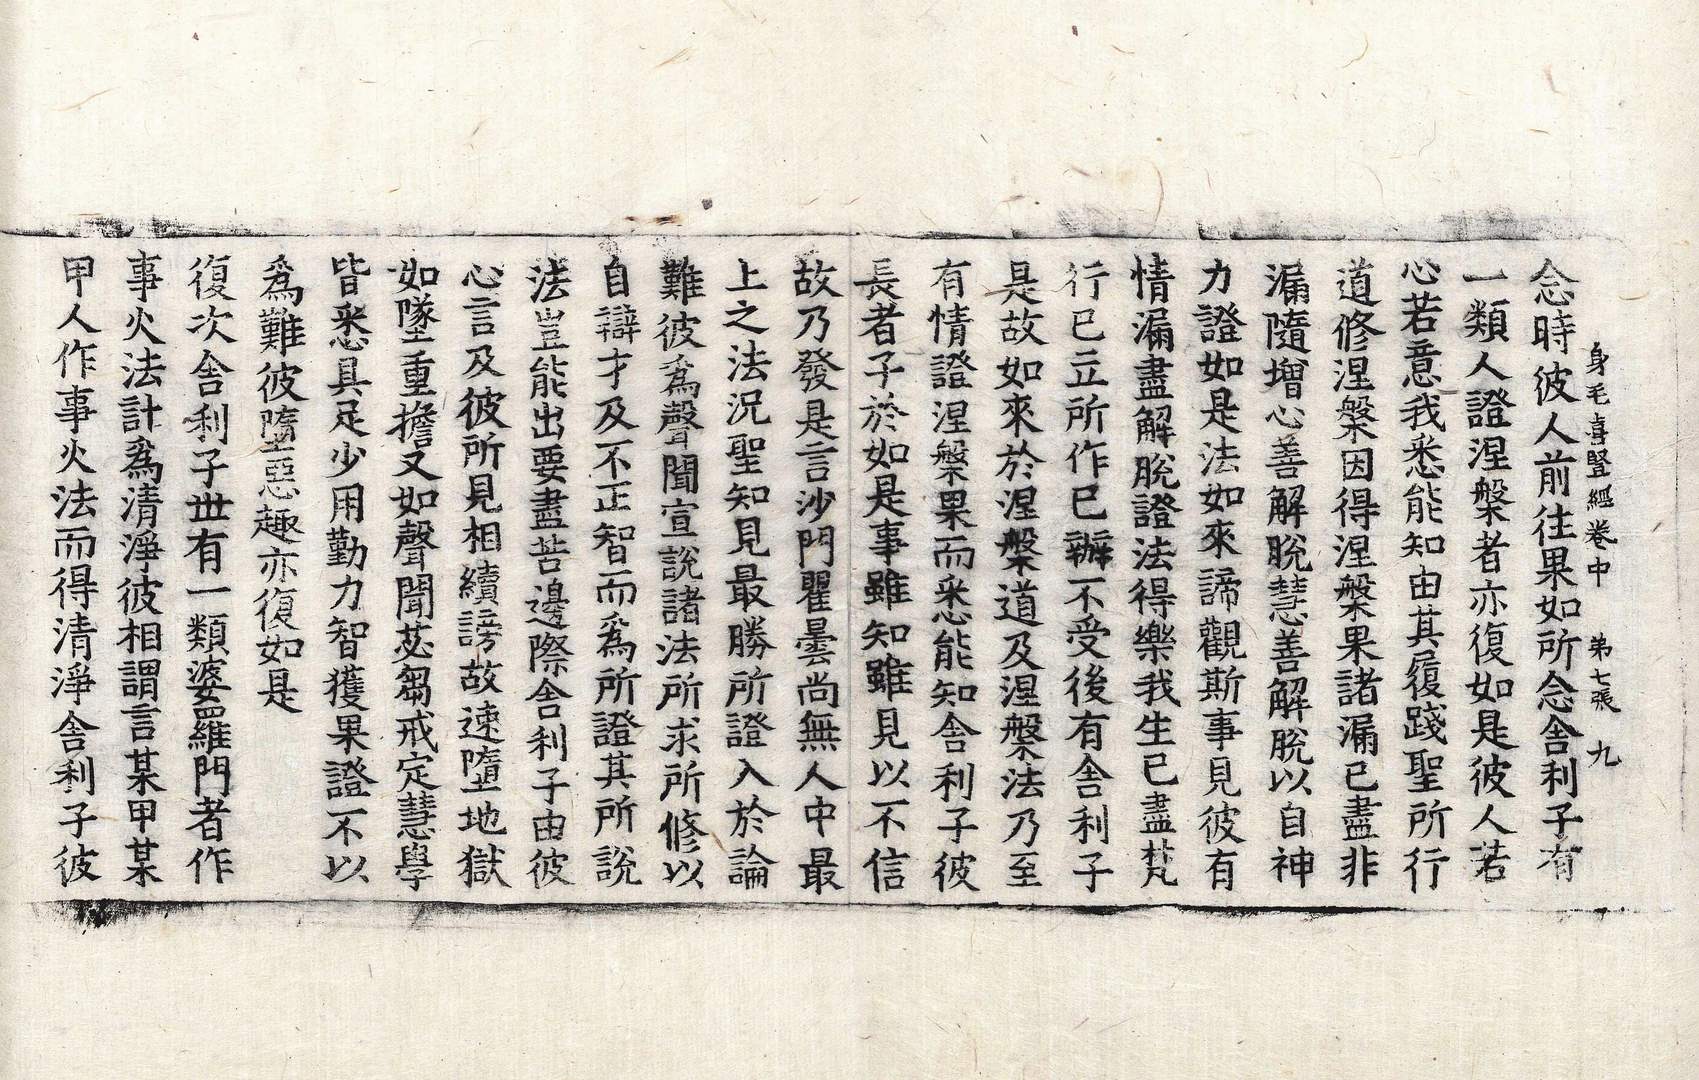 身毛喜豎經卷中　第七張　九
念時彼人前往果如所念舍利子有
一類人證涅槃者亦復如是彼人若
心若意我悉能知由其履踐聖所行
道修涅槃因得涅槃果諸漏已盡非
漏隨增心善解脫慧善解脫以自神
力證如是法如來諦觀斯事見彼有
情漏盡解脫證法得樂我生已盡梵
行已立所作已辦不受後有舍利子
是故如來於涅槃道及涅槃法乃至
有情證涅槃果而悉能知舍利子彼
長者子於如是事雖知雖見以不信
故乃發是言沙門瞿曇尚無人中最
上之法況聖知見最勝所證入於論
難彼爲聲聞宣說諸法所求所修以
自辯才及不正智而爲所證其所說
法豈能出要盡苦邊際舍利子由彼
心言及彼所見相續謗故速墮地獄
如墜重擔又如聲聞苾芻戒定慧學
皆悉具足少用勤力智獲果證不以
爲難彼墮惡趣亦復如是
復次舍利子世有一類婆羅門者作
事火法計爲清淨彼相謂言某甲某
甲人作事火法而得清淨舍利子彼